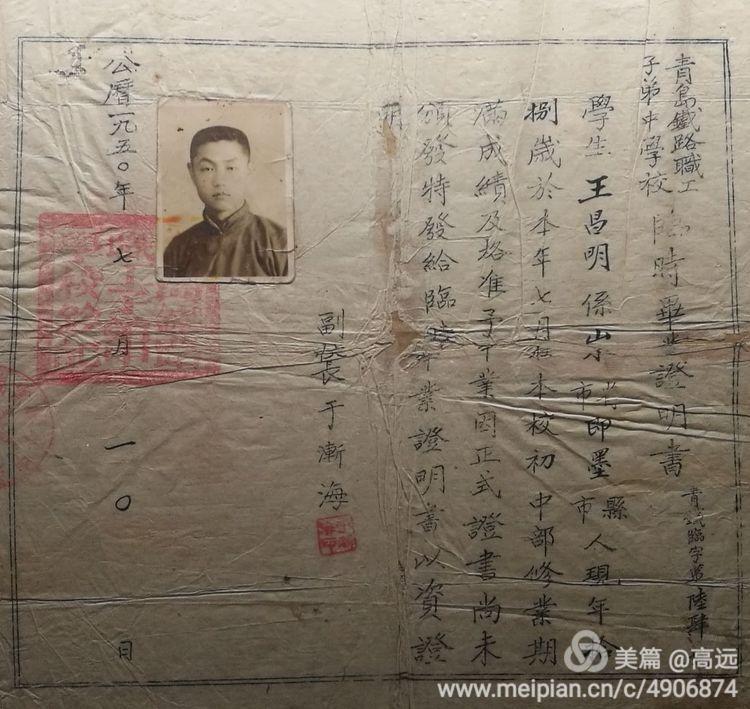 青島鐵路職工
子弟中學校
臨時畢業證明書
青鐵臨字第陸肆
學生王昌明係山东省即墨縣人現年拾
市 市
捌歲於本年七月在本校初中部修業期
滿成績及格准予畢業因正式證書尚未
頒發特發給臨時畢業證明書以資證
明
副校長于漸海
公曆一九五〇年七月一〇日
美篇 @高远
www.meipian.cn/c/4906874